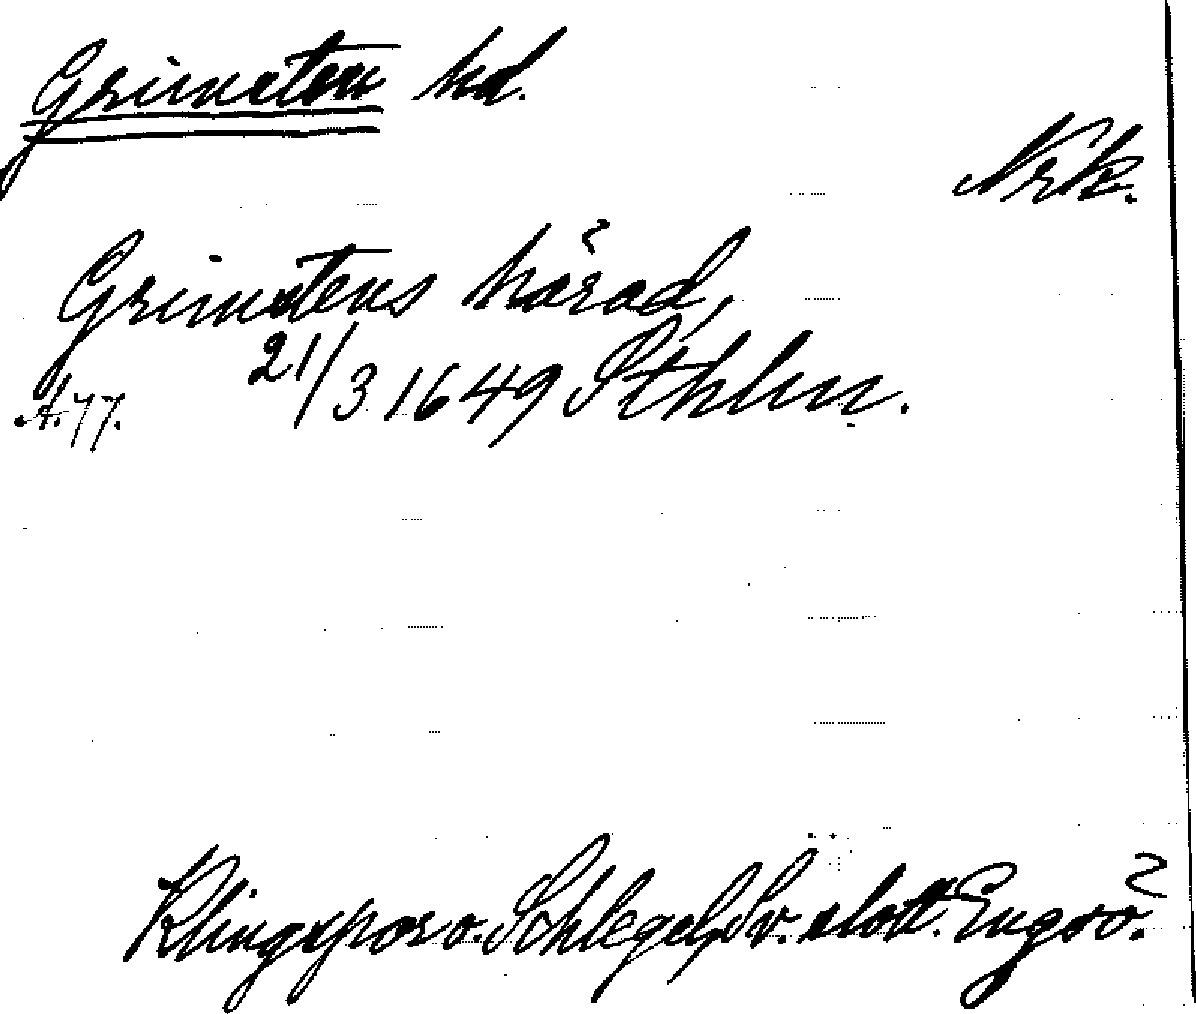 Grimsten hd.
Nrk.
Grimstens härad,
21/3 1649 Sthlm.
A. 77.
Klingspor o. Schlegel, Sv. slott. Engsö.